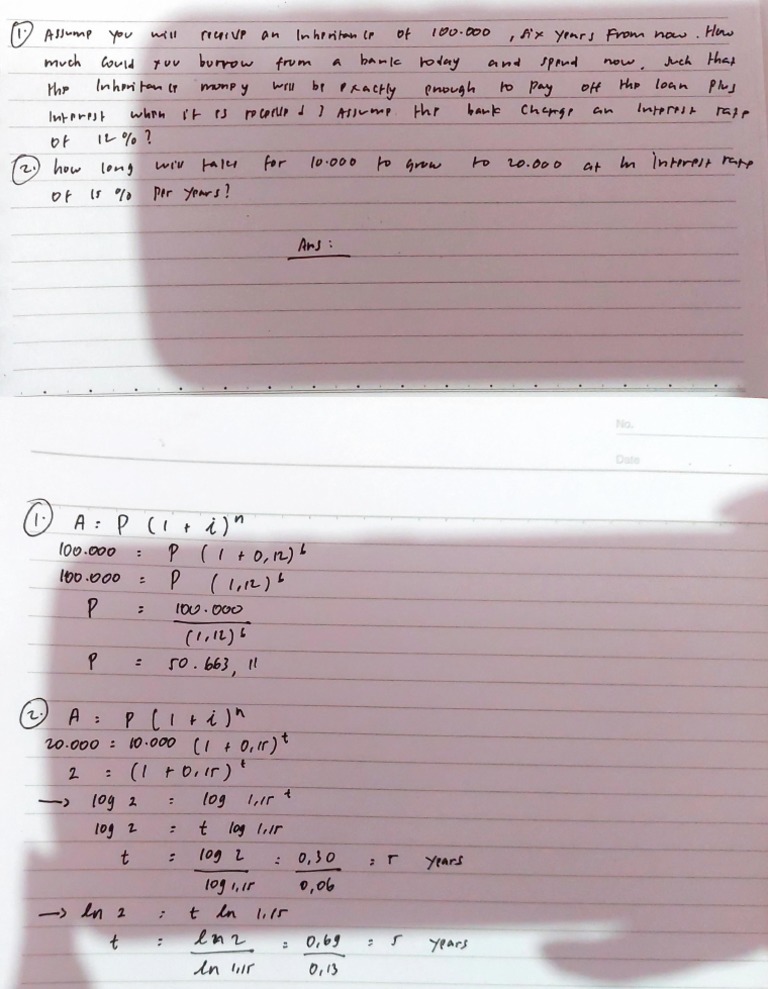 1. Assume you will receive an inheritance of 100.000, six years from now. How
much could you burrow from a bank today and spend now, such that
the inheritance money will be exactly enough to pay off the loan plus
interest when it is received? Assume the bank charge an interest rate
of 12%?
2. how long will take for 10.000 to grow to 20.000 at an interest rate
of 15% per years?
Ans:
No.
Date
1. A = P (1 + i)ⁿ
100.000 = P (1 + 0,12)⁶
100.000 = P (1,12)⁶
P = 100.000
(1,12)⁶
P = 50.663,11
2. A = P (1 + i)ⁿ
20.000 = 10.000 (1 + 0,15)ᵗ
2 = (1 + 0,15)ᵗ
→ log 2 = log 1,15 ᵗ
log 2 = t log 1,15
t = log 2 = 0,30 = 5 years
log 1,15 0,06
→ ln 2 = t ln 1,15
t = ln 2 = 0,69 = 5 years
ln 1,15 0,13